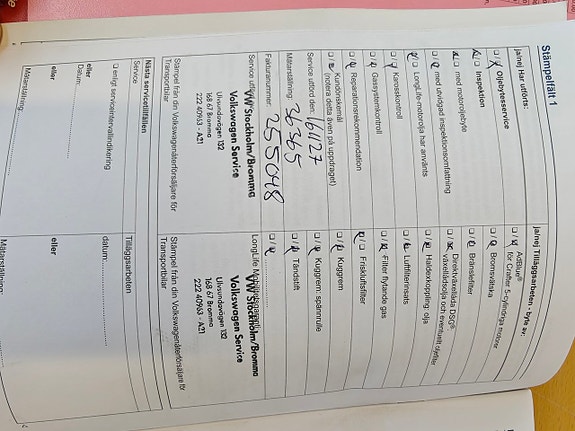 Stämpelfält 1
ja/nej Har utförts:
Oljebytesservice
Inspektion
med motoroljebyte
med utvidgad inspektionsomfattning
LongLife-motorolja har använts
Karosskontroll
Gassystemkontroll
Reparationsrekommendation
Kundönskemål
(notera detta även på uppdraget)
Service utförd den: 161127
Mätarställning: 36365
Fakturanummer: 255048
Service utförd av:
VW Stockholm/Bromma
Volkswagen Service
Ulvsundavägen 132
168 67 Bromma
222 40963 - A21
Stämpel från din Volkswagenåterförsäljare för
Transportbilar
Nästa servicetillfällen
Service
enligt serviceintervallindikering
eller
Datum:
eller
Mätarställning:
ja/nej Tilläggsarbeten - byte av:
AdBlue®
för Crafter 5-cylindriga motorer
Bromsvätska
Bränslefilter
Direktväxellåda DSG®
växellådsolja och eventuellt oljefilter
Haldexkoppling: olja
Luftfilterinsats
-Filter flytande gas
Friskluftsfilter
Kuggrem
Kuggrem: spännrulle
Tändstift
LongLife Mobilitetsgaranti
VW Stockholm/Bromma
Volkswagen Service
Ulvsundavägen 132
168 67 Bromma
222 40963 - A21
Stämpel från din Volkswagenåterförsäljare för
Transportbilar
Tilläggsarbeten
datum:
eller
Mätarställning: